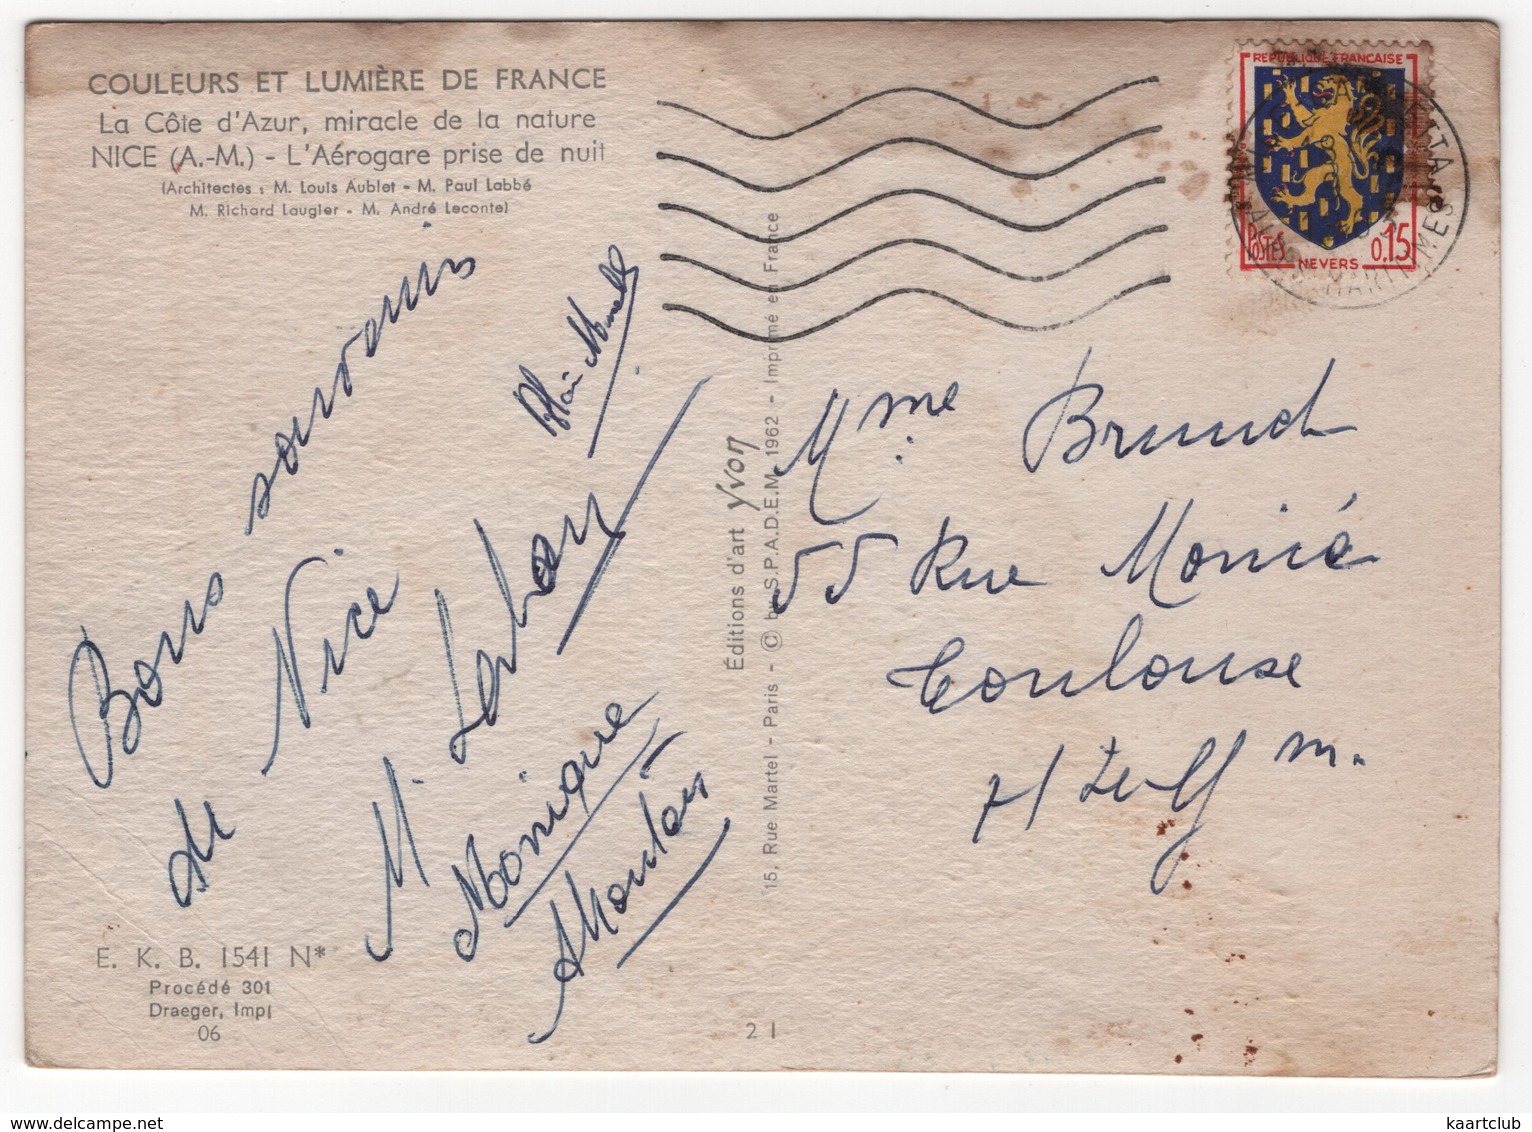 COULEURS ET LUMIÈRE DE FRANCE
La Côte d'Azur, miracle de la nature
NICE (A.-M.) - L'Aérogare prise de nuit
(Architectes : M. Louis Aublet - M. Paul Labbé
M. Richard Laugier - M. André Lecomte)
Bons souvenirs
de Nice
Monique
E. K. B. 1541 N*
Procédé 301
Draeger, Imp.
06
Éditions d'art Yvon
15, Rue Martel - Paris - © by S.P.A.D.E.M. 1962 - Imprimé en France
21
RÉPUBLIQUE FRANÇAISE
POSTES
0.15
NEVERS
ALPES MARITIMES
Mme
55 Rue
Toulouse
kaartclub